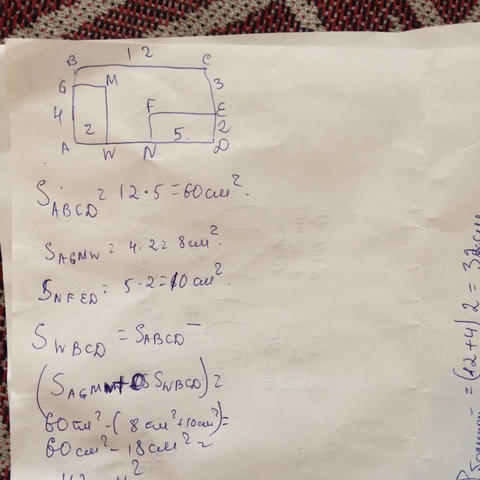 12
B C
G M 3
4 F E
2 5. 2
A W N D
S ABCD = 12 · 5 = 60 см².
S AGMW = 4 · 2 = 8 см².
S NFED = 5 · 2 = 10 см².
S WBCD = S ABCD −
60 см² − (8 см² + 10 см²) =
60 см² − 18 см² =
= (12+4) 2 = 32 см